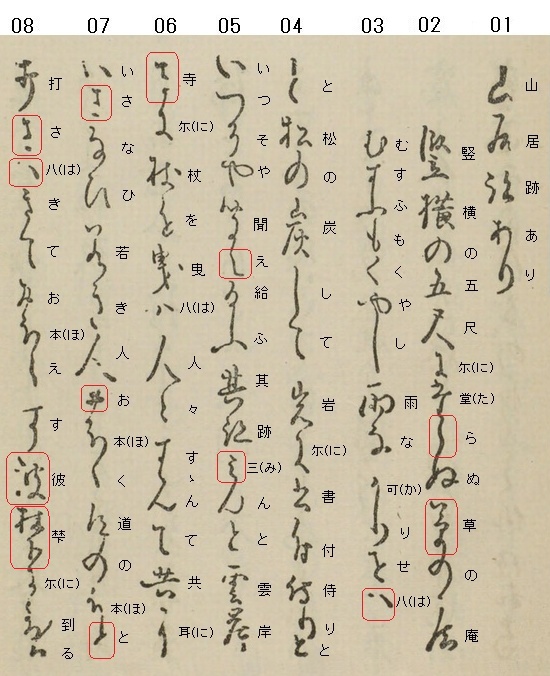 01 山居跡あり
02 竪横の五尺尔(に)堂(た)らぬ草の庵
03 むすふもくやし雨な可(か)りせ八(は)
04 と松の炭して岩尔(に)書付侍りと
05 いつそや聞え給ふ其跡三(み)んと雲岸
06 寺尔(に)杖を曳八(は)人々すゝんて共耳(に)
07 いさなひ若き人お本(ほ)く道の本(ほ)と
08 打さ八(は)きてお本(ほ)えす彼梺尔(に)到る